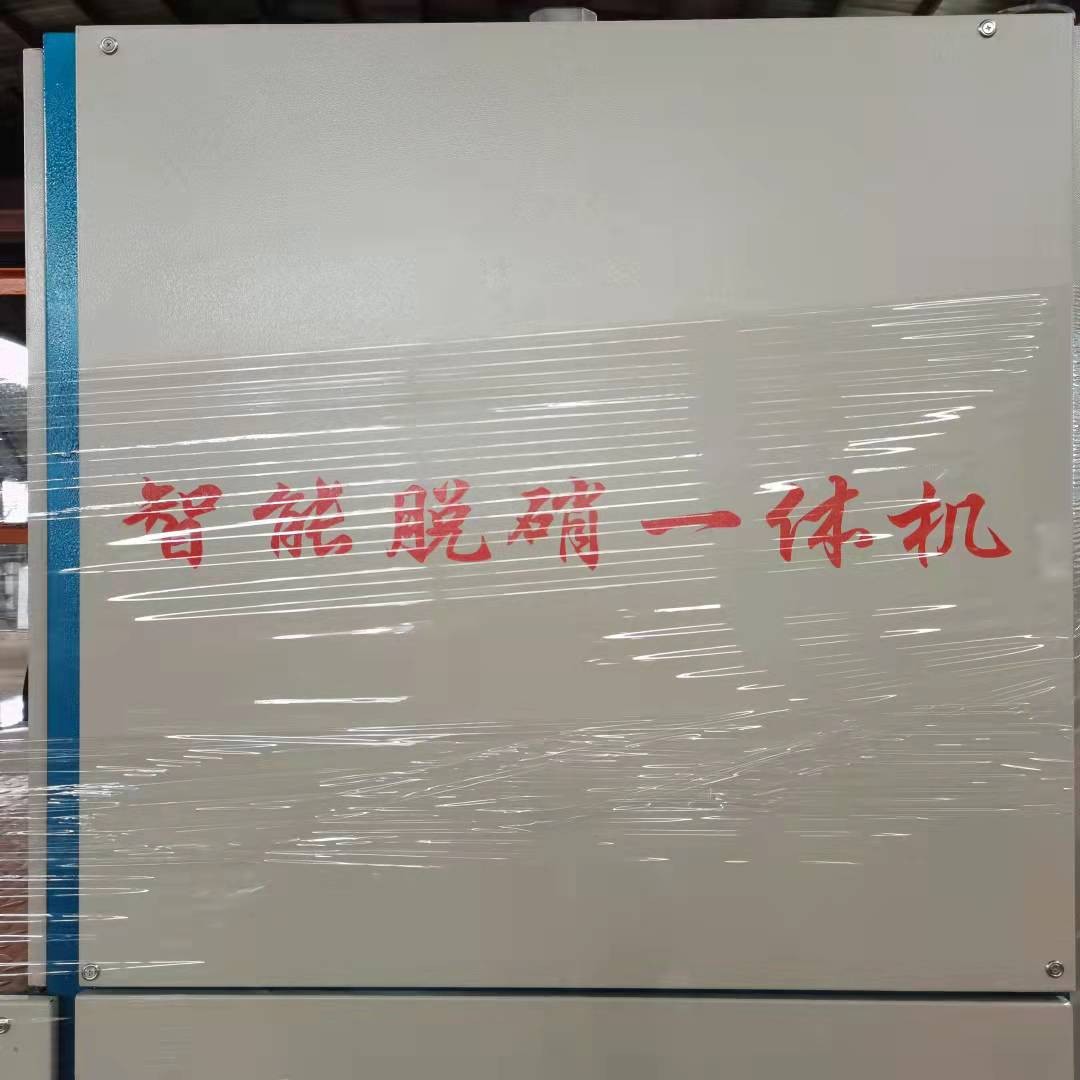 智能脱硝一体机